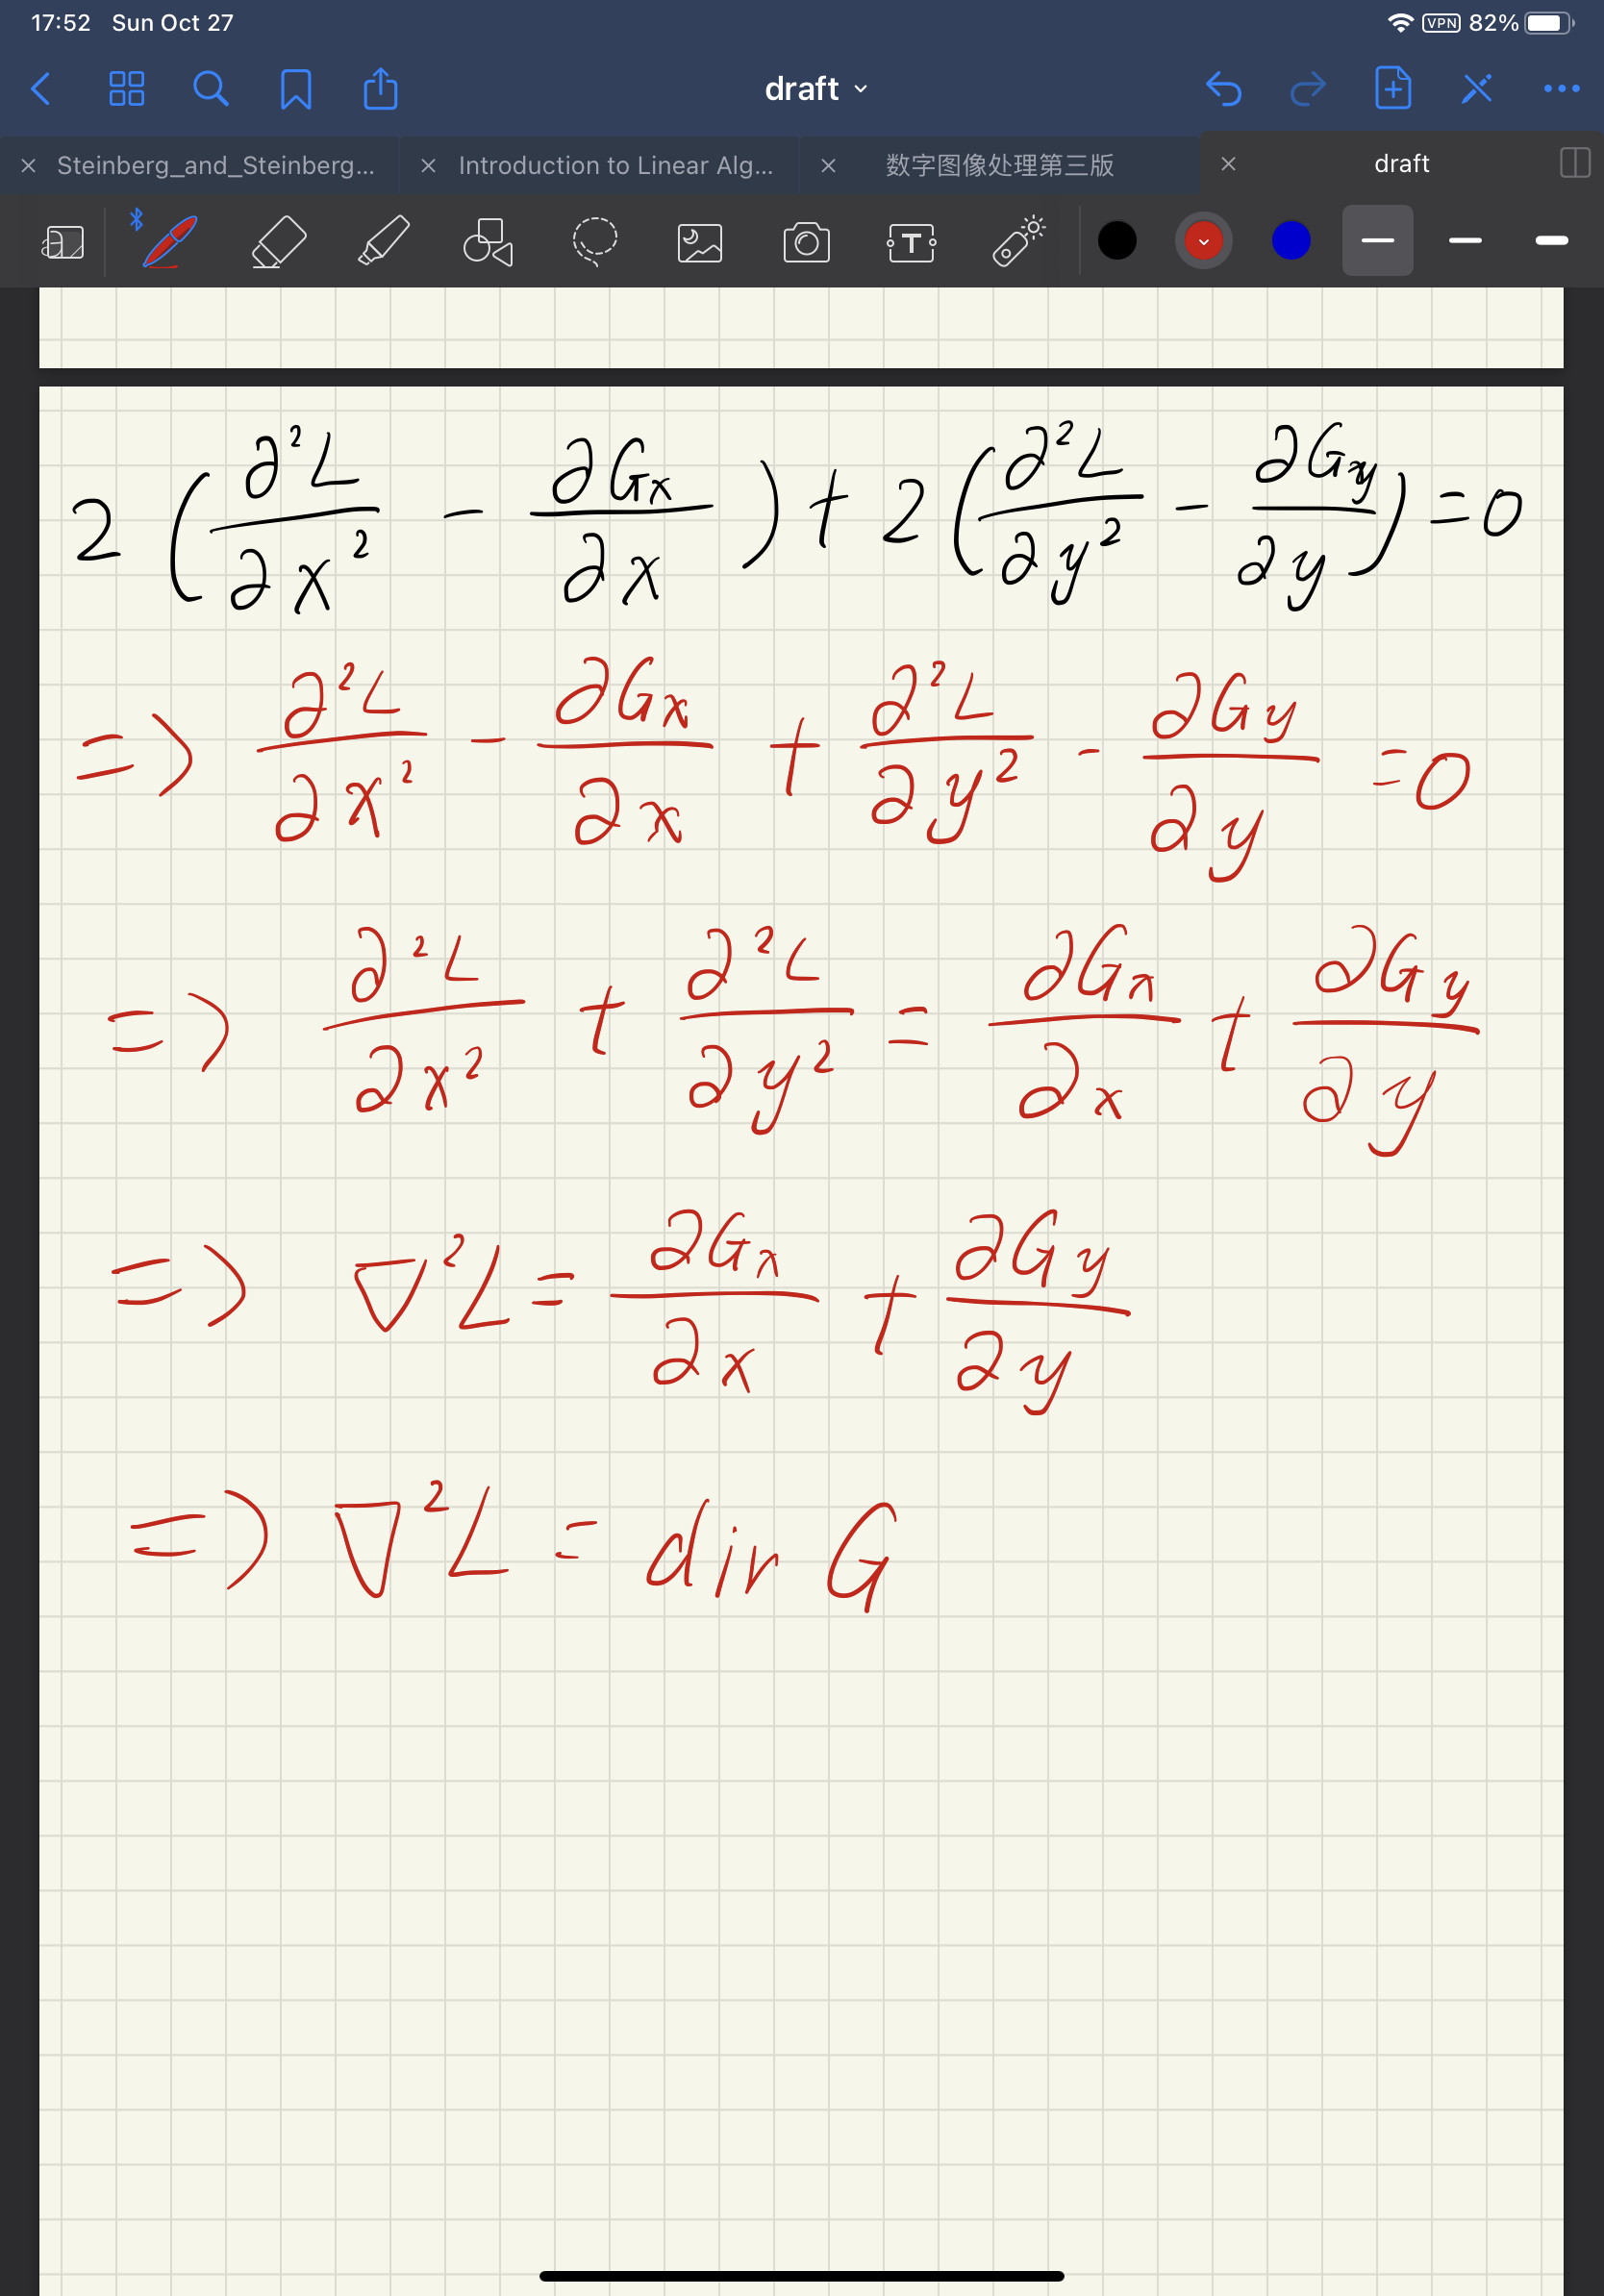 17:52 Sun Oct 27 VPN 82%
draft
Steinberg_and_Steinberg... Introduction to Linear Alg... 数字图像处理第三版 draft
2 (∂²L/∂x² - ∂Gx/∂x) + 2 (∂²L/∂y² - ∂Gy/∂y) = 0
=> ∂²L/∂x² - ∂Gx/∂x + ∂²L/∂y² - ∂Gy/∂y = 0
=> ∂²L/∂x² + ∂²L/∂y² = ∂Gx/∂x + ∂Gy/∂y
=> ∇²L = ∂Gx/∂x + ∂Gy/∂y
=> ∇²L = div G